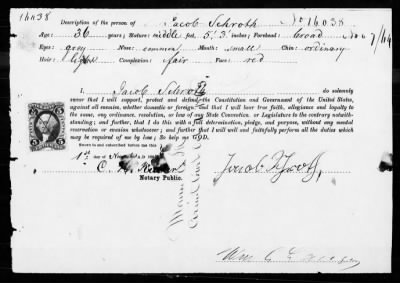 16038
Description of the person of Jacob Schroth No 16038
Age: 36 years; Stature: middle feet, 5' 3" inches; Forehead: broad
Eyes: grey Nose: common Mouth: small Chin: ordinary
Hair: Complexion: fair Face: red
I, Jacob Schroth do solemnly
swear that I will support, protect and defend the Constitution and Government of the United States,
against all enemies, whether domestic or foreign; and that I will bear true faith, allegiance and loyalty to
the same, any ordinance, resolution, or law of any State Convention or Legislature to the contrary notwith-
standing; and further, that I do this with a full determination, pledge, and purpose, without any mental
reservation or evasion whatsoever; and further that I will well and faithfully perform all the duties which
may be required of me by law; So help me GOD.
Sworn to and subscribed before me this
1st day of November
Notary Public.
Jacob
Wm